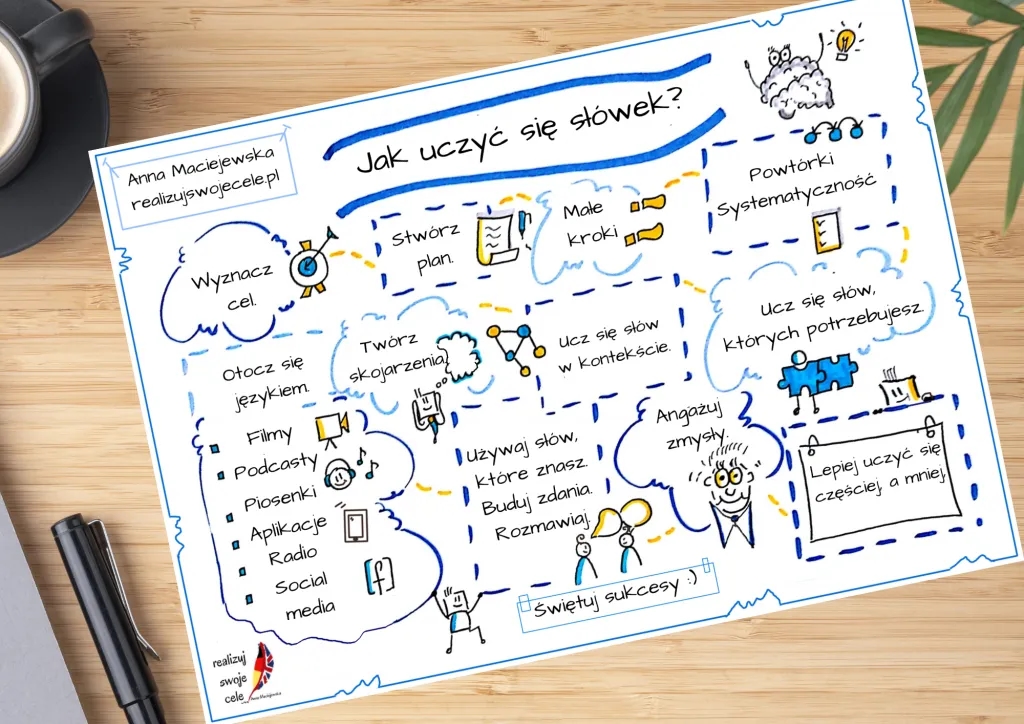 Anna Maciejewska
realizujswojecele.pl
Jak uczyć się słówek?
Wyznacz
cel.
Stwórz
plan.
Małe
kroki
Powtórki
Systematyczność
Ucz się słów,
których potrzebujesz.
Ucz się słów
w kontekście.
Twórz
skojarzenia
Otocz się
językiem.
Filmy
Podcasty
Piosenki
Aplikacje
Radio
Social
media
Używaj słów,
które znasz.
Buduj zdania.
Rozmawiaj.
Angażuj
zmysły.
Lepiej uczyć się
częściej, a mniej.
Świętuj sukcesy :)
realizuj
swoje
cele